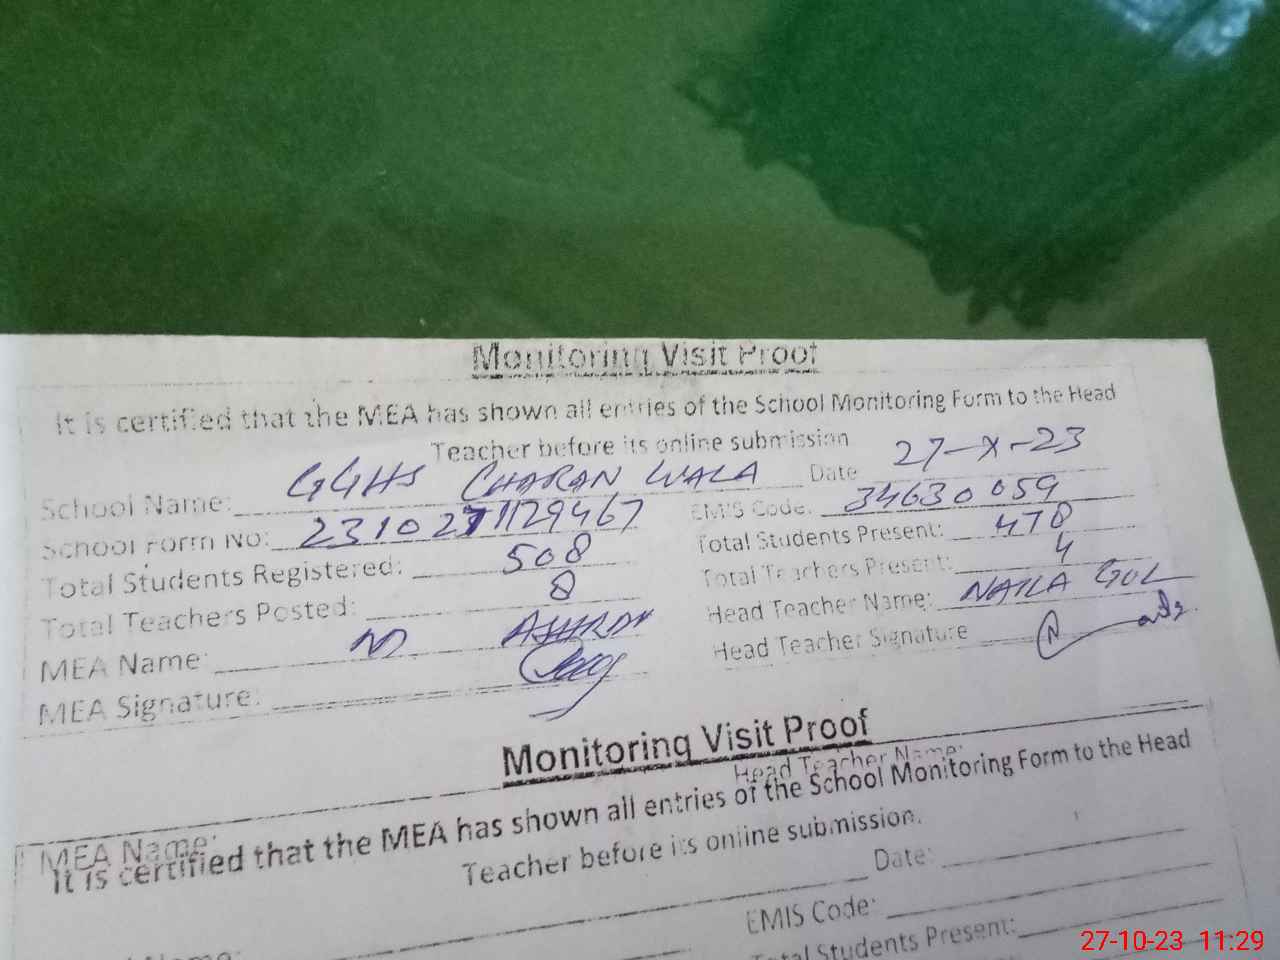 Monitoring Visit Proof
It is certified that the MEA has shown all entries of the School Monitoring Form to the Head
Teacher before its online submission
School Name: GGHS CHARAN WALA Date 27-X-23
School Form No: 2310271129467 EMIS Code: 34630059
Total Students Registered: 508 Total Students Present: 478
Total Teachers Posted: 8 Total Teachers Present: 4
MEA Name: M ASHRAF Head Teacher Name: NAILA GUL
MEA Signature: Head Teacher Signature
Monitoring Visit Proof
Head Teacher Name:
MEA Name:
It is certified that the MEA has shown all entries of the School Monitoring Form to the Head
Teacher before its online submission.
Date:
EMIS Code:
Total Students Present:
27-10-23 11:29